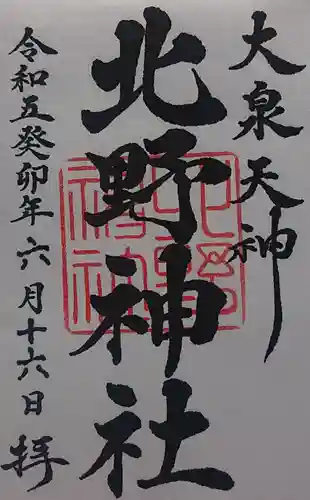 大泉天神
北野神社
令和五癸卯年六月十六日 拝
北野神社